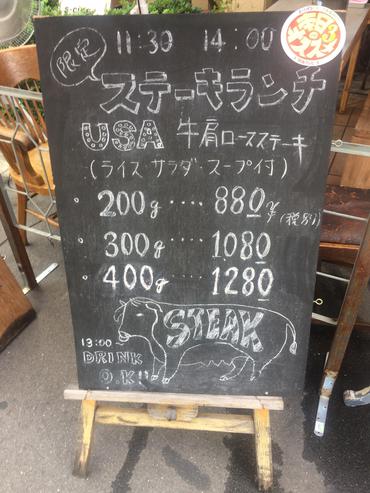 限定
11:30 14:00
ステーキランチ
USA 牛肩ロースステーキ
(ライス サラダ・スープ付)
200g ···· 880 (税別)
300g ···· 1080
400g ···· 1280
STEAK
13:00~
DRINK
O.K!!